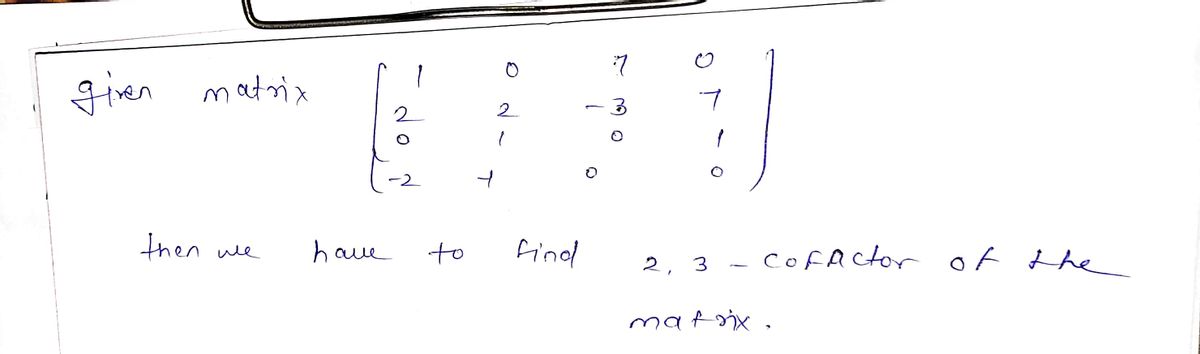 given matrix [ 1 0 7 0
2 2 -3 7
0 1 0 1
-2 -1 0 0 ]
then we have to find 2, 3 - cofactor of the
matrix.